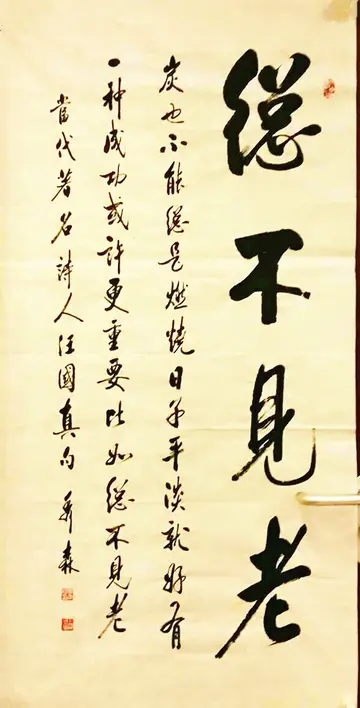 總不見老
炭也不能總是燃燒日子平淡就好有
一种成功或許更重要比如總不見老
當代著名詩人汪國真句 森